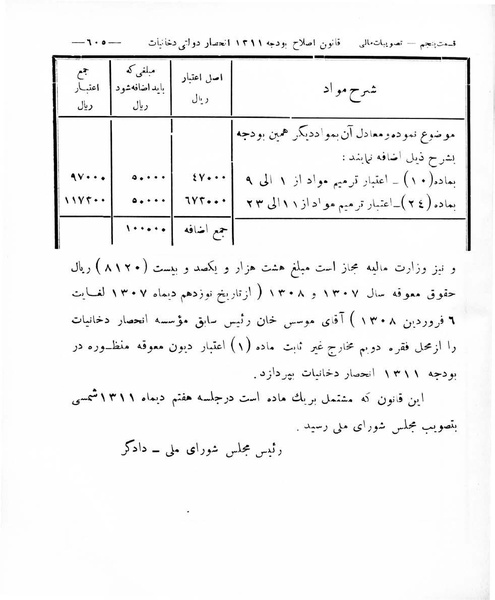 قسمت پنجم — تصویبات مالی قانون اصلاح بودجه ۱۳۱۱ انحصار دولتی دخانیات —۶۰۵—
شرح مواد | اصل اعتبار ریال | مبلغی که باید اضافه شود ریال | جمع اعتبار ریال
موضوع نموده و معادل آن بمواد دیگر همین بودجه
بشرح ذیل اضافه نمایند :
بماده (۱۰) ـ اعتبار ترمیم مواد از ۱ الی ۹ | ۴۷۰۰۰ | ۵۰۰۰۰ | ۹۷۰۰۰
بماده (۲۴) ـ اعتبار ترمیم مواد از ۱۱ الی ۲۳ | ۶۷۳۰۰ | ۵۰۰۰۰ | ۱۱۷۳۰۰
جمع اضافه | ۱۰۰۰۰۰
و نیز وزارت مالیه مجاز است مبلغ هشت هزار و یکصد و بیست (۸۱۲۰) ریال
حقوق معوقه سال ۱۳۰۷ و ۱۳۰۸ ( از تاریخ نوزدهم دیماه ۱۳۰۷ لغایت
۶ فروردین ۱۳۰۸ ) آقای موسس خان رئیس سابق مؤسسه انحصار دخانیات
را از محل فقره دویم مخارج غیر ثابت ماده (۱) اعتبار دیون معوقه منظوره در
بودجه ۱۳۱۱ انحصار دخانیات بپردازد .
این قانون که مشتمل بر یك ماده است در جلسه هفتم دیماه ۱۳۱۱ شمسی
بتصویب مجلس شورای ملی رسید .
رئیس مجلس شورای ملی ـ دادگر